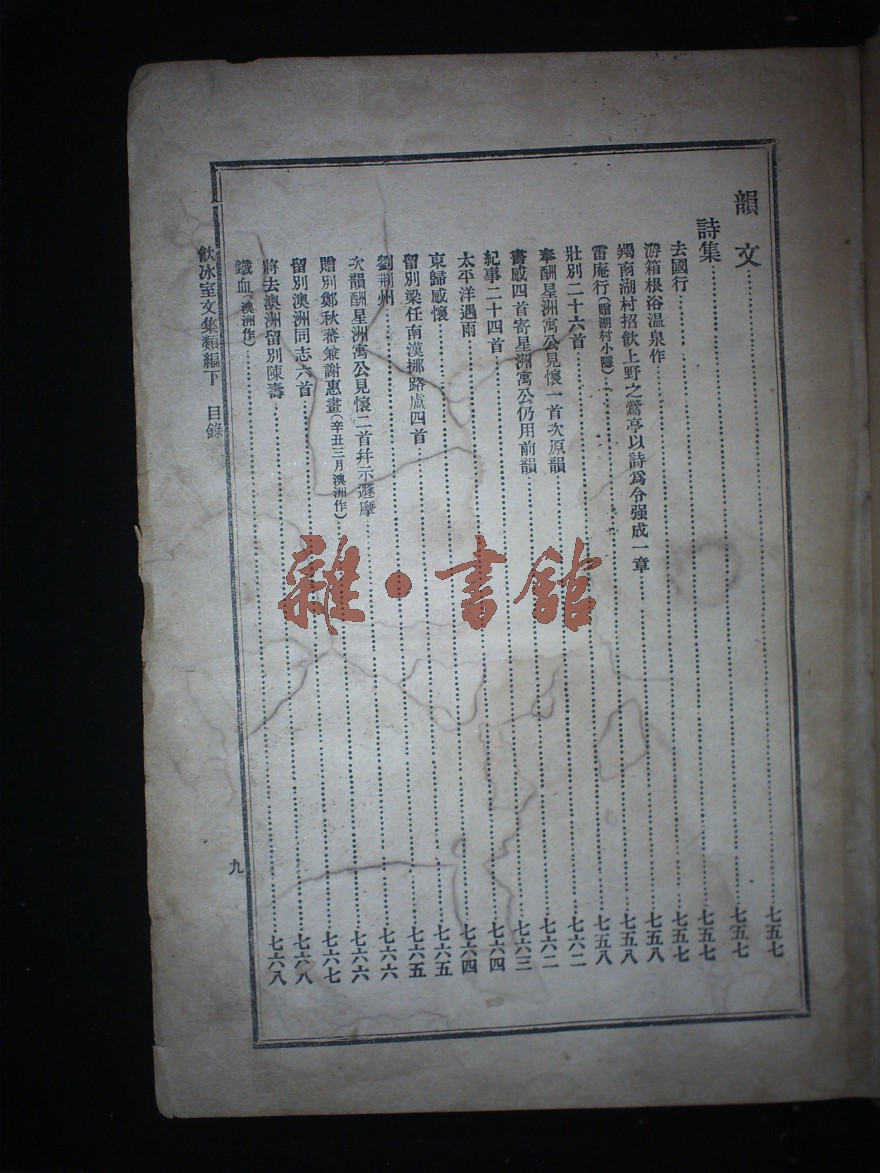 韻文⋯⋯七五七
詩集⋯⋯七五七
去國行⋯⋯七五七
游箱根浴温泉作⋯⋯七五七
羯南湖村招飲上野之鶯亭以詩爲令强成一章⋯⋯七五八
雷庵行(贈湖村小隱)⋯⋯七五八
壯別二十六首⋯⋯七五八
奉酬星洲寓公見懷一首次原韻⋯⋯七六二
書感四首寄星洲寓公仍用前韻⋯⋯七六二
紀事二十四首⋯⋯七六三
太平洋遇雨⋯⋯七六四
東歸感懷⋯⋯七六四
留別梁任南漢挪路盧四首⋯⋯七六五
劉荆州⋯⋯七六五
次韻酬星洲寓公見懷二首幷示遯⋯⋯七六六
贈別鄭秋蕃兼謝惠畫(辛丑三月澳洲作)⋯⋯七六六
留別澳洲同志六首⋯⋯七六七
將去澳洲留別陳壽⋯⋯七六八
鐵血(澳洲作)⋯⋯七六八
飲冰室文集類編下 目錄 九
雜·書館